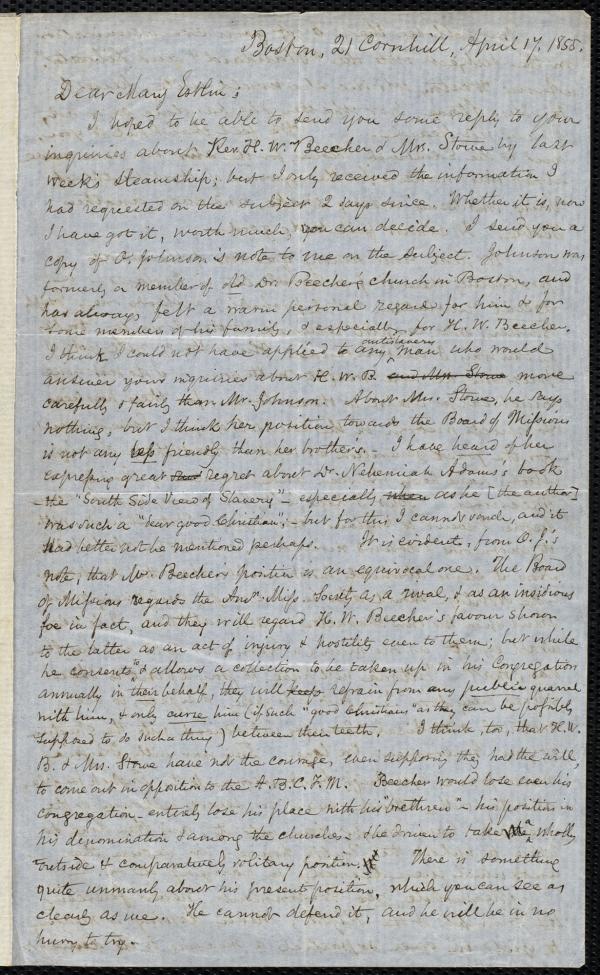 Boston, 21 Cornhill, April 17. 1855.
Dear Mary Estlin;
I hoped to be able to send you some reply to your
inquiries about Rev. H. W. Beecher & Mrs. Stowe by last
week's steamship; but I only received the information I
had requested on the subject 2 days since. Whether it is, now
I have got it, worth much, you can decide. I send you a
copy of O. Johnson's note to me on the subject. Johnson was
formerly a member of old Dr. Beecher's church in Boston, and
has always felt a warm personal regard for him & for
some members of his family, & especially for H. W. Beecher.
I think I could not have applied to any antislavery man who would
answer your inquiries about H. W. B. and Mrs Stowe more
carefully & fairly than Mr. Johnson. About Mrs. Stowe, he says
nothing; but I think her position towards the Board of Missions
is not any less friendly than her brother's. – I have heard of her
expressing great regret about Dr. Nehemiah Adams's book
– the "South Side View of Slavery" – especially when as he [the author]
was such a "dear good Christian"; – but for this I cannot vouch, and it
had better not be mentioned perhaps. It is evident, from O. J.'s
note, that Mr. Beecher's position is an equivocal one. The Board
of Missions regards the Amn. Miss. Society as a rival, & as an insidious
foe in fact, and they will regard H. W. Beecher's favour shown
to the latter as an act of injury & hostility even to them; but while
he consents to & allows a collection to be taken up in his Congregation
annually in their behalf, they will keep refrain from any public quarrel
with him, & only curse him (if such "good Christians" as they can be possibly
supposed to do such a thing) between their teeth. I think, too, that H. W.
B. & Mrs. Stowe have not the courage, even supposing they had the will,
to come out in opposition to the A. B. C. F. M. Beecher would lose even his
congregation – entirely lose his place with his "brethren" – his position in
his denomination & among the churches – & be driven to take a wholly
outside & comparatively solitary position. There is something
quite unmanly about his present position, which you can see as
clearly as me. He cannot defend it, and he will be in no
hurry to try.